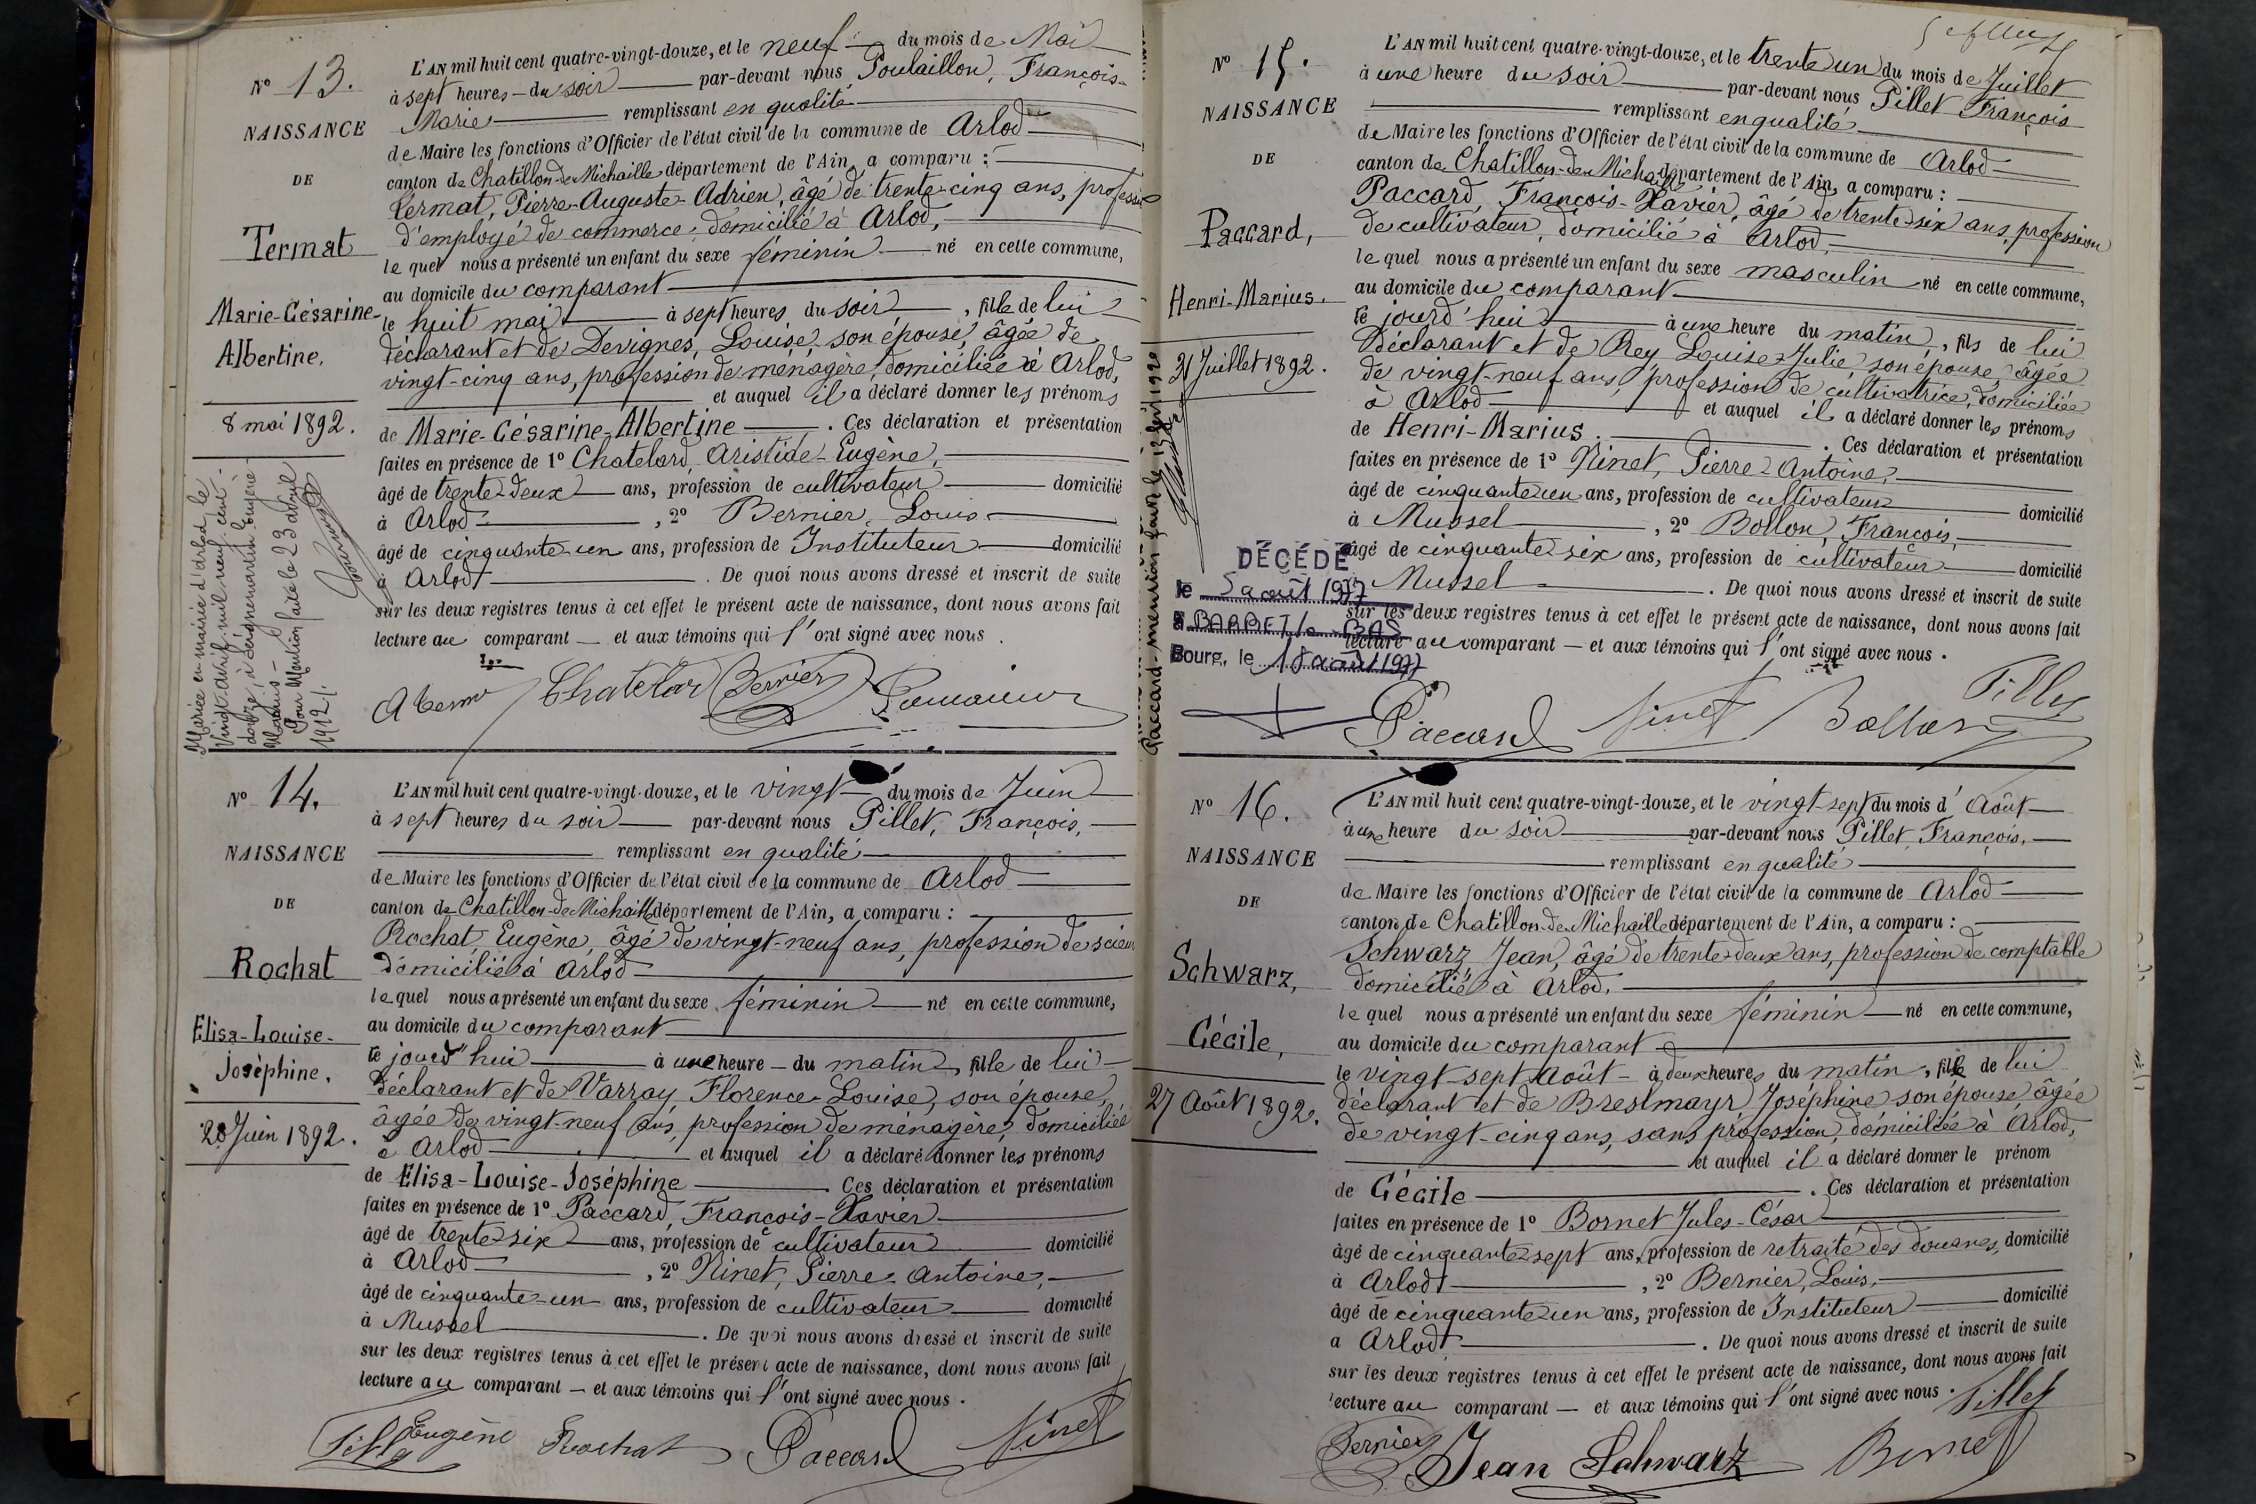 N° 13.
NAISSANCE
DE
Termat
Marie-Césarine-
Albertine.
8 mai 1892.
Mariée en mairie d'Arlod, le
vingt avril mil neuf cent
douze, à
Pour Mention faite le 23 avril
1912.
L'AN mil huit cent quatre-vingt-douze, et le neuf du mois de Mai
à sept heures du soir par-devant nous Poulaillon, François-
Marie remplissant en qualité
de Maire les fonctions d'Officier de l'état civil de la commune de Arlod
canton de Chatillon-de-Michaille département de l'Ain, a comparu :
Termat, Pierre-Auguste-Adrien, âgé de trente-cinq ans, profession
d'employé de commerce, domicilié à Arlod,
lequel nous a présenté un enfant du sexe féminin né en cette commune,
au domicile du comparant
le huit mai à sept heures du soir, fille de lui
déclarant et de Devignes, Louise, son épouse, âgée de
vingt-cinq ans, profession de ménagère, domiciliée à Arlod,
et auquel il a déclaré donner les prénoms
de Marie-Césarine-Albertine. Ces déclaration et présentation
faites en présence de 1° Chatelard, Aristide-Eugène,
âgé de trente-deux ans, profession de cultivateur domicilié
à Arlod, 2° Bernier, Louis
âgé de cinquante-un ans, profession de Instituteur domicilié
à Arlod. De quoi nous avons dressé et inscrit de suite
sur les deux registres tenus à cet effet le présent acte de naissance, dont nous avons fait
lecture au comparant — et aux témoins qui l'ont signé avec nous.
Chatelard Bernier
N° 14.
NAISSANCE
DE
Rochat
Elisa-Louise-
Joséphine.
20 Juin 1892.
L'AN mil huit cent quatre-vingt-douze, et le vingt du mois de Juin
à sept heures du soir par-devant nous Pillet, François,
remplissant en qualité
de Maire les fonctions d'Officier de l'état civil de la commune de Arlod
canton de Chatillon-de-Michaille département de l'Ain, a comparu :
Rochat Eugène, âgé de vingt-neuf ans, profession de scieur
domicilié à Arlod
lequel nous a présenté un enfant du sexe féminin né en cette commune,
au domicile du comparant
le jourd'hui à une heure du matin, fille de lui
déclarant et de Varray Florence-Louise, son épouse,
âgée de vingt-neuf ans, profession de ménagère, domiciliée
à Arlod et auquel il a déclaré donner les prénoms
de Elisa-Louise-Joséphine. Ces déclaration et présentation
faites en présence de 1° Paccard, François-Xavier
âgé de trente-six ans, profession de cultivateur domicilié
à Arlod, 2° Ninet, Pierre-Antoine,
âgé de cinquante-un ans, profession de cultivateur domicilié
à Mussel. De quoi nous avons dressé et inscrit de suite
sur les deux registres tenus à cet effet le présent acte de naissance, dont nous avons fait
lecture au comparant — et aux témoins qui l'ont signé avec nous.
Pillet Eugène Rochat Paccard Ninet
N° 15.
NAISSANCE
DE
Paccard,
Henri-Marius.
31 Juillet 1892.
DÉCÉDÉ
le 5 août 1977
Bourg, le 18 août 1977
L'AN mil huit cent quatre-vingt-douze, et le trente un du mois de Juillet
à une heure du soir par-devant nous Pillet François
remplissant en qualité
de Maire les fonctions d'Officier de l'état civil de la commune de Arlod
canton de Chatillon-de-Michaille département de l'Ain, a comparu :
Paccard, François-Xavier, âgé de trente-six ans, profession
de cultivateur, domicilié à Arlod,
lequel nous a présenté un enfant du sexe masculin né en cette commune,
au domicile du comparant
le jourd'hui à une heure du matin, fils de lui
déclarant et de Rey Louise-Julie son épouse, âgée
de vingt-neuf ans, profession de cultivatrice, domiciliée
à Arlod et auquel il a déclaré donner les prénoms
de Henri-Marius. Ces déclaration et présentation
faites en présence de 1° Ninet, Pierre-Antoine,
âgé de cinquante un ans, profession de cultivateur domicilié
à Mussel, 2° Bollon, François,
âgé de cinquante-six ans, profession de cultivateur domicilié
à Mussel. De quoi nous avons dressé et inscrit de suite
sur les deux registres tenus à cet effet le présent acte de naissance, dont nous avons fait
lecture au comparant — et aux témoins qui l'ont signé avec nous.
Paccard Ninet Bollon Pillet
N° 16.
NAISSANCE
DE
Schwarz,
Cécile,
27 Août 1892.
L'AN mil huit cent quatre-vingt-douze, et le vingt-sept du mois d'Août
à une heure du soir par-devant nous Pillet, François,
remplissant en qualité
de Maire les fonctions d'Officier de l'état civil de la commune de Arlod
canton de Chatillon-de-Michaille département de l'Ain, a comparu :
Schwarz Jean, âgé de trente-deux ans, profession de comptable
domicilié à Arlod,
lequel nous a présenté un enfant du sexe féminin né en cette commune,
au domicile du comparant
le vingt-sept Août à deux heures du matin, fille de lui
déclarant et de Breslmayr Joséphine son épouse âgée
de vingt-cinq ans, sans profession, domiciliée à Arlod,
et auquel il a déclaré donner le prénom
de Cécile. Ces déclaration et présentation
faites en présence de 1° Bornet Jules-César
âgé de cinquante-sept ans, profession de retraité des douanes, domicilié
à Arlod, 2° Bernier, Louis,
âgé de cinquante un ans, profession de Instituteur domicilié
à Arlod. De quoi nous avons dressé et inscrit de suite
sur les deux registres tenus à cet effet le présent acte de naissance, dont nous avons fait
lecture au comparant — et aux témoins qui l'ont signé avec nous. Pillet
Bernier Jean Schwarz Bornet